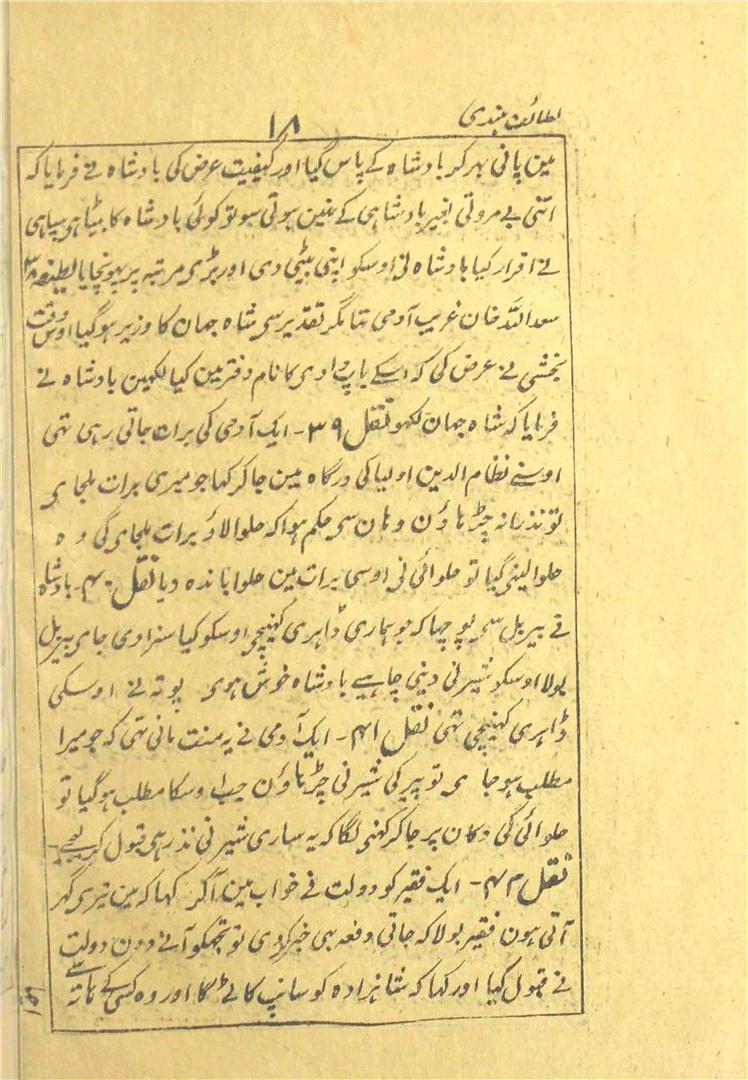 لطائف ہندی
۱۸
مین پانی بہر کر بادشاہ کے پاس گیا اور کیفیت عرض کی بادشاہ نے فرمایا کہ
اتنی بے مروتی بغیر بادشاہی کے نہین ہوتی ہو تو کوئی بادشاہ کا بیٹا ہی سپاہی
نے اقرار کیا بادشاہ نی اوسکو اپنی بیٹی دی اور بڑی مرتبہ پر پہونچایا لطیفہ ۳۸
سعد اللہ خان غریب آدمی تھا مگر تقدیر سی شاہ جہان کا وزیر ہو گیا اوس وقت
بخشی نے عرض کی کہ اسکے باپ دادی کا نام دفتر مین کیا لکہین بادشاہ نے
فرمایا کہ شاہ جہان لکہو نقل ۳۹ - ایک آدمی کی برات جاتی رہی تہی
اوسنے نظام الدین اولیا کی درگاہ مین جا کر کہا جو میری برات ملجای
تو نذرانہ چڑہاؤن وہان سی حکم ہوا کہ حلوا لاؤ برات ملجای گی وہ
حلوا لینی گیا تو حلوائی نی اوسی برات مین حلوا باندہ دیا نقل ۴۰ - بادشاہ
نے بیربل سی پوچہا کہ جو ہماری ڈاہری کہینچی اوسکو کیا سزا دی جای بیربل
بولا اوسکو شیرنی دینی چاہیے بادشاہ خوش ہوی پوتہ نے اوسکی
ڈاہری کہینچی تہی نقل ۴۱ - ایک آدمی نے یہ منت مانی تہی کہ جو میرا
مطلب ہو جای تو پیر کی شیرنی چڑہاؤن جب اوسکا مطلب ہو گیا تو
حلوائی کی دکان پر جا کر کہنی لگا کہ یہ ساری شیرنی نذر ہی قبول کر لیجے -
نقل ۴۲ - ایک فقیر کو دولت نے خواب مین آ کر کہا کہ مین تیری گہر
آتی ہون فقیر بولا کہ جاتی دفعہ بہی خبر کردی تو تجہکو آنے دون دولت
نے قبول کیا اور کہا کہ شاہزادہ کو سانپ کاٹے گا اور وہ کسی کے ہاتہ سے